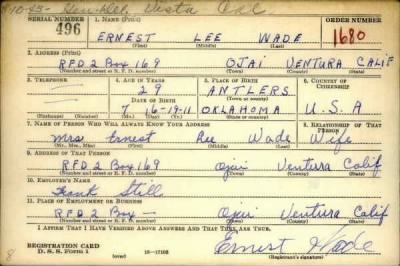 SERIAL NUMBER 1. NAME (Print) ORDER NUMBER
496 ERNEST LEE WADE 1680
(First) (Middle) (Last)
2. ADDRESS (Print)
RFD 2 Box 169 OJAI VENTURA CALIF
(Number and street or R. F. D. number) (Town) (County) (State)
3. TELEPHONE 4. AGE IN YEARS 5. PLACE OF BIRTH 6. COUNTRY OF CITIZENSHIP
29 ANTLERS
DATE OF BIRTH (Town or county)
7 16-1911 OKLAHOMA U.S.A
(Exchange) (Number) (Mo.) (Day) (Yr.) (State or country)
7. NAME OF PERSON WHO WILL ALWAYS KNOW YOUR ADDRESS 8. RELATIONSHIP OF THAT PERSON
Mrs Ernest Lee Wade Wife
(Mr., Mrs., Miss) (First) (Middle) (Last)
9. ADDRESS OF THAT PERSON
RFD 2 Box 169 Ojai Ventura Calif
(Number and street or R. F. D. number) (Town) (County) (State)
10. EMPLOYER'S NAME
Frank Still
11. PLACE OF EMPLOYMENT OR BUSINESS
RFD 2 Box — Ojai Ventura Calif
(Number and street or R. F. D. number) (Town) (County) (State)
I AFFIRM THAT I HAVE VERIFIED ABOVE ANSWERS AND THAT THEY ARE TRUE.
REGISTRATION CARD
D. S. S. Form 1
Ernest Wade
(Registrant's signature)